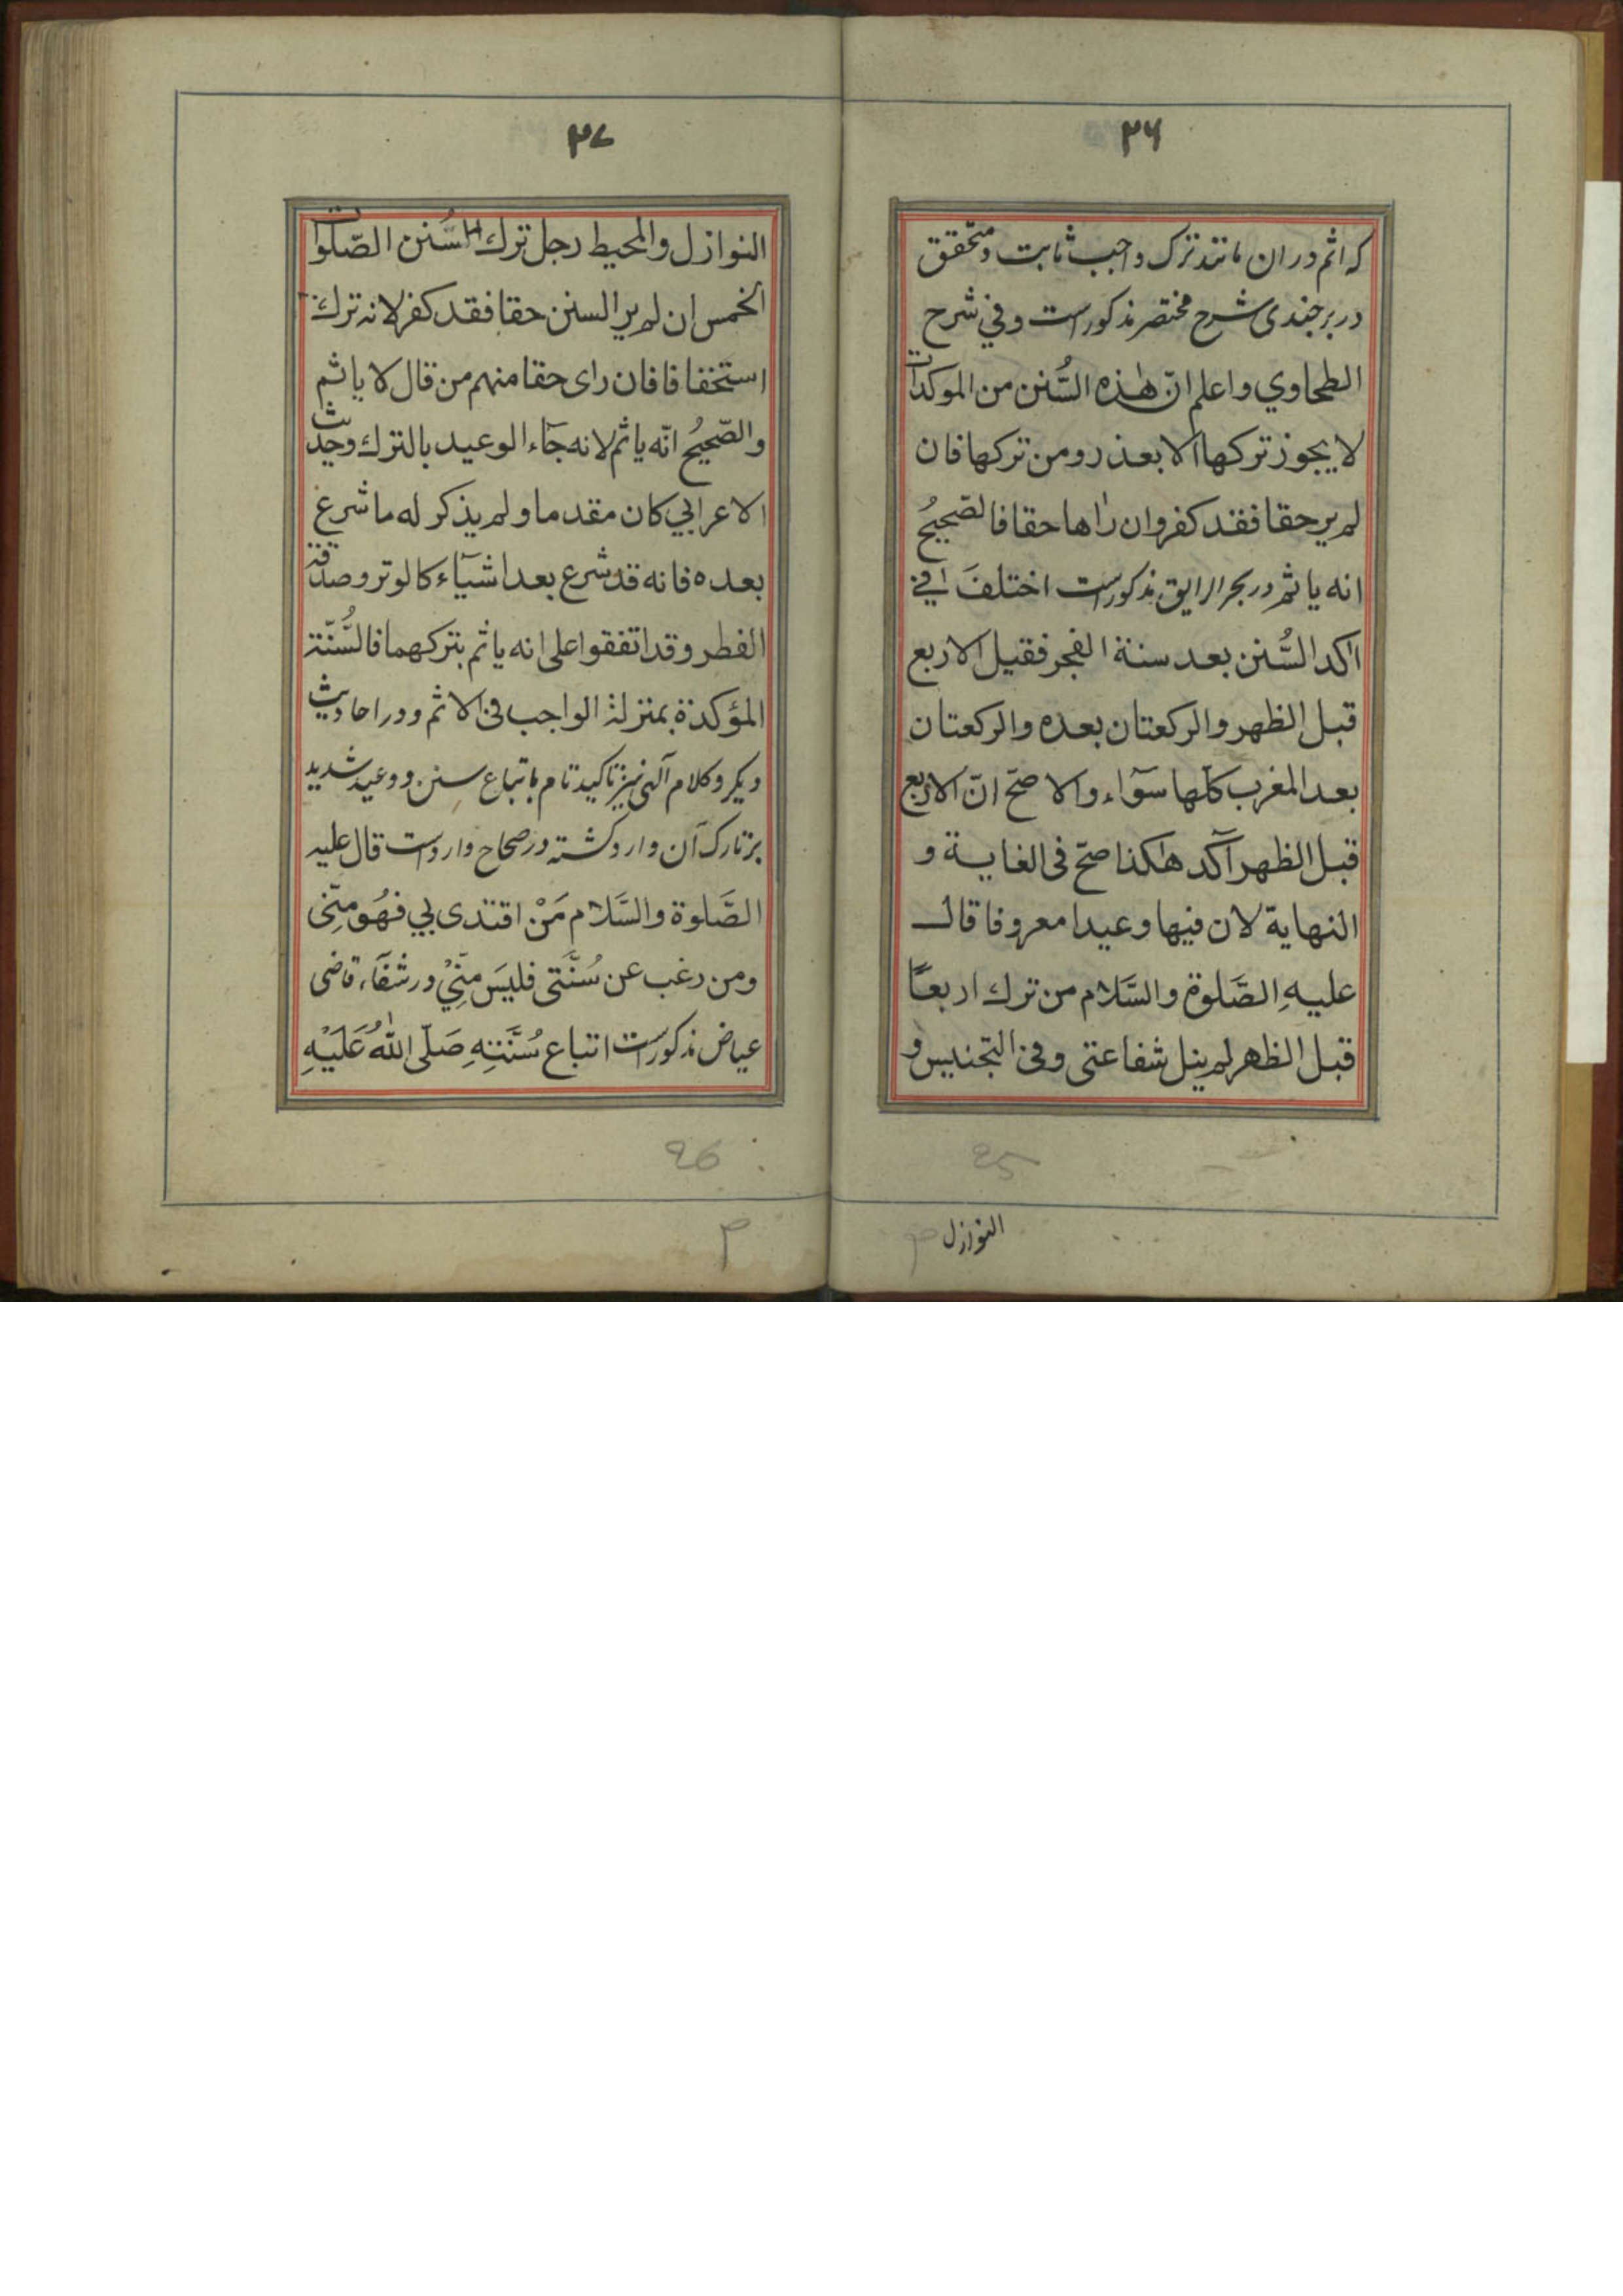 ۲۶
كه اثم در ان مانند ترك واجب ثابت و متحقق
در برجندى شرح مختصر مذكورست وفي شرح
الطحاوي واعلم انّ هٰذه السُّنن من الموكدات
لا يجوز تركها الا بعذر ومن تركها فان
لم ير حقا فقد كفر وان راها حقا فالصّحيحُ
انه ياثم در بحر الرايق مذكورست اختلفَ في
اٰكد السُّنن بعد سنة الفجر فقيل الاربع
قبل الظهر والركعتان بعده والركعتان
بعد المغرب كلّها سوآء والاصحّ انّ الاربع
قبل الظهر آكد هٰكذا صحّ فى الغاية و
النهاية لان فيها وعيدا معروفا قال
عليهِ الصَّلوة والسَّلام من ترك اربعًا
قبل الظهر لم ينل شفاعتى وفى التجنيس و
25
النوازل
۲۷
النوازل والمحيط رجل ترك السُّنن الصّلوات
الخمس ان لم ير السنن حقا فقد كفر لانه ترك
استخفافا فان راى حقا منهم من قال لا ياثم
والصّحيحُ انّه ياثم لانه جآء الوعيد بالترك وحديث
الاعرابي كان مقدما ولم يذكر له ما شرع
بعده فانه قد شرع بعد اشيآء كالوتر وصدقة
الفطر وقد اتفقوا على انه ياثم بتركهما فالسُّنّة
المؤكدة بمنزلة الواجب فى الاثم و در احاديث
ديكر وكلام آلهى نيز تاكيد تام باتباع سنن و وعيد شديد
بر تارك آن وارد كشته در صحاح واردست قال عليه
الصَّلوة والسَّلام مَنْ اقتدى بي فهُو منِّى
ومن رغب عن سُنَّتى فليسَ منِّيْ در شفآء قاضى
عياض مذكورست اتباع سُنَّتِهِ صَلّى اللهُ عَلَيْهِ
26